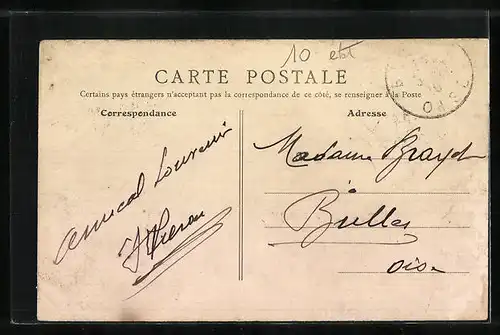 10 ebt
CARTE POSTALE
Certains pays étrangers n'acceptant pas la correspondance de ce côté, se renseigner à la Poste
Correspondance
Adresse
amical Souvenir
Madame
Bulles
Oise
OISE